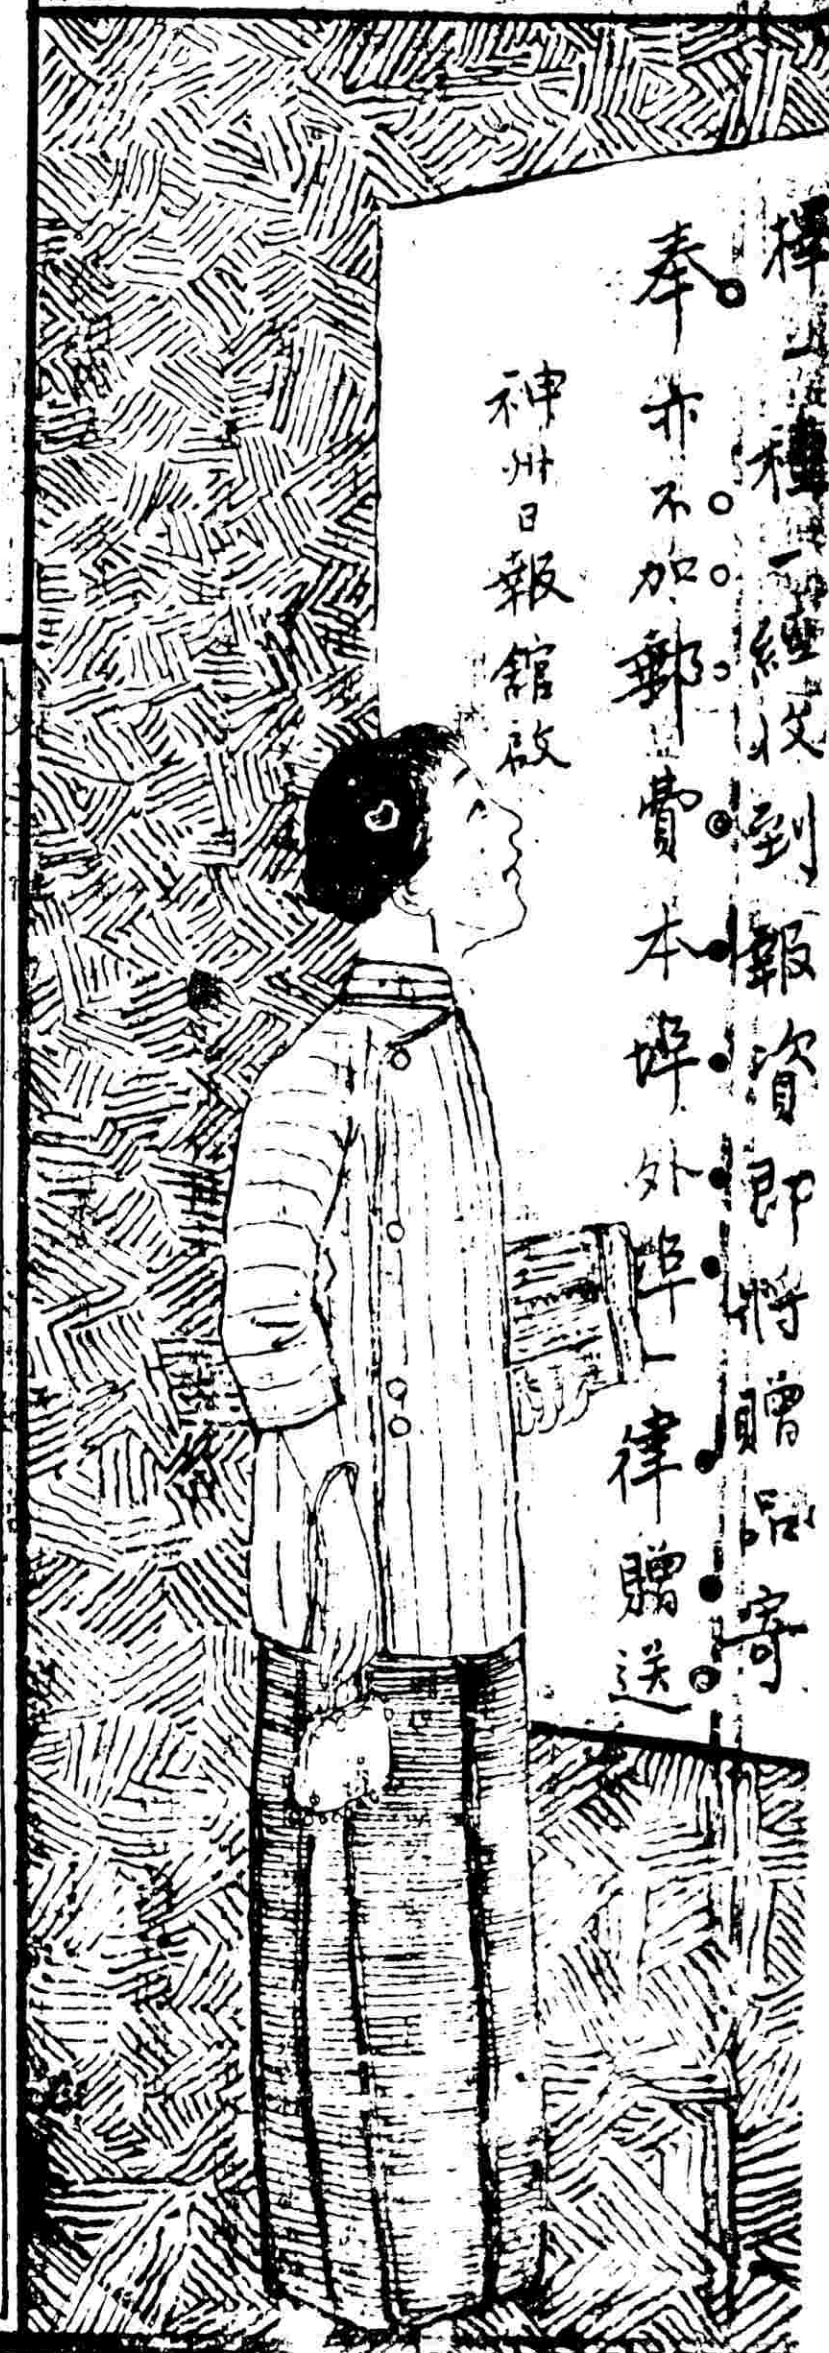 擇一種一經收到報資即將贈品寄
奉亦不加郵費本埠外埠一律贈送
神州日報館啟